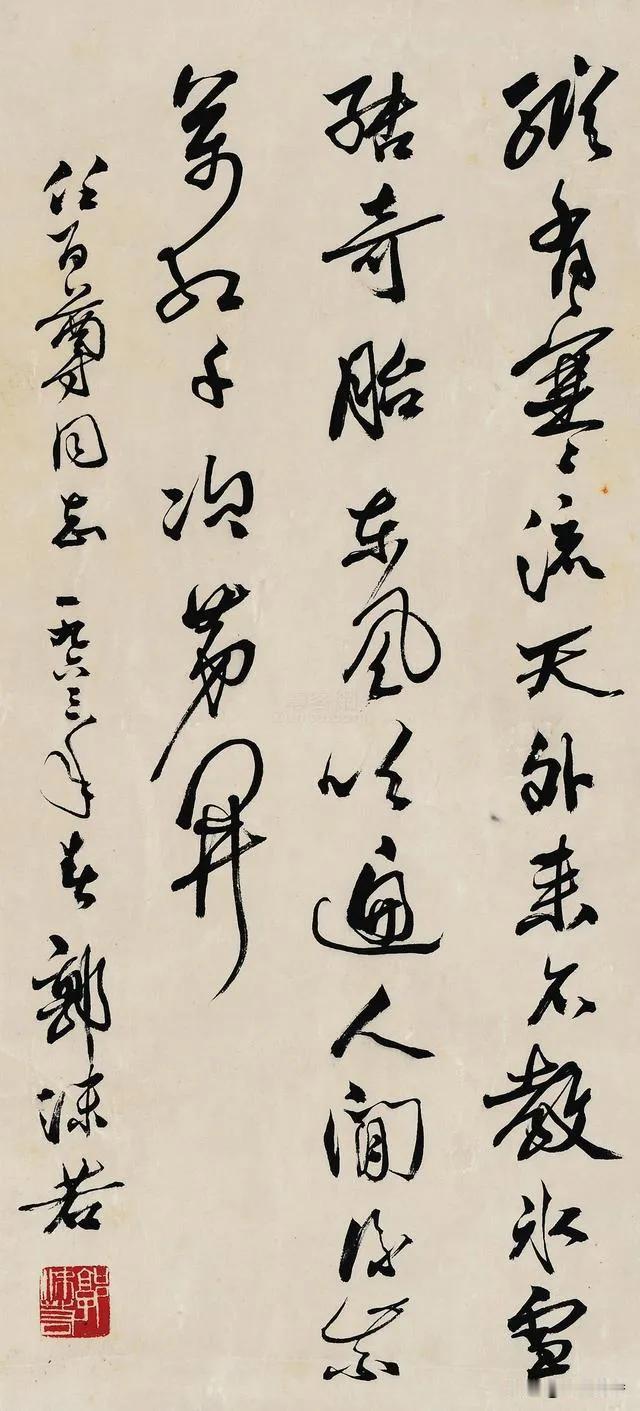 纵有寒流天外来不教冰雪
结奇胎东风吹遍人间后紫
万红千次第开
任百尊同志 一九六三年春 郭沫若
郭沫若